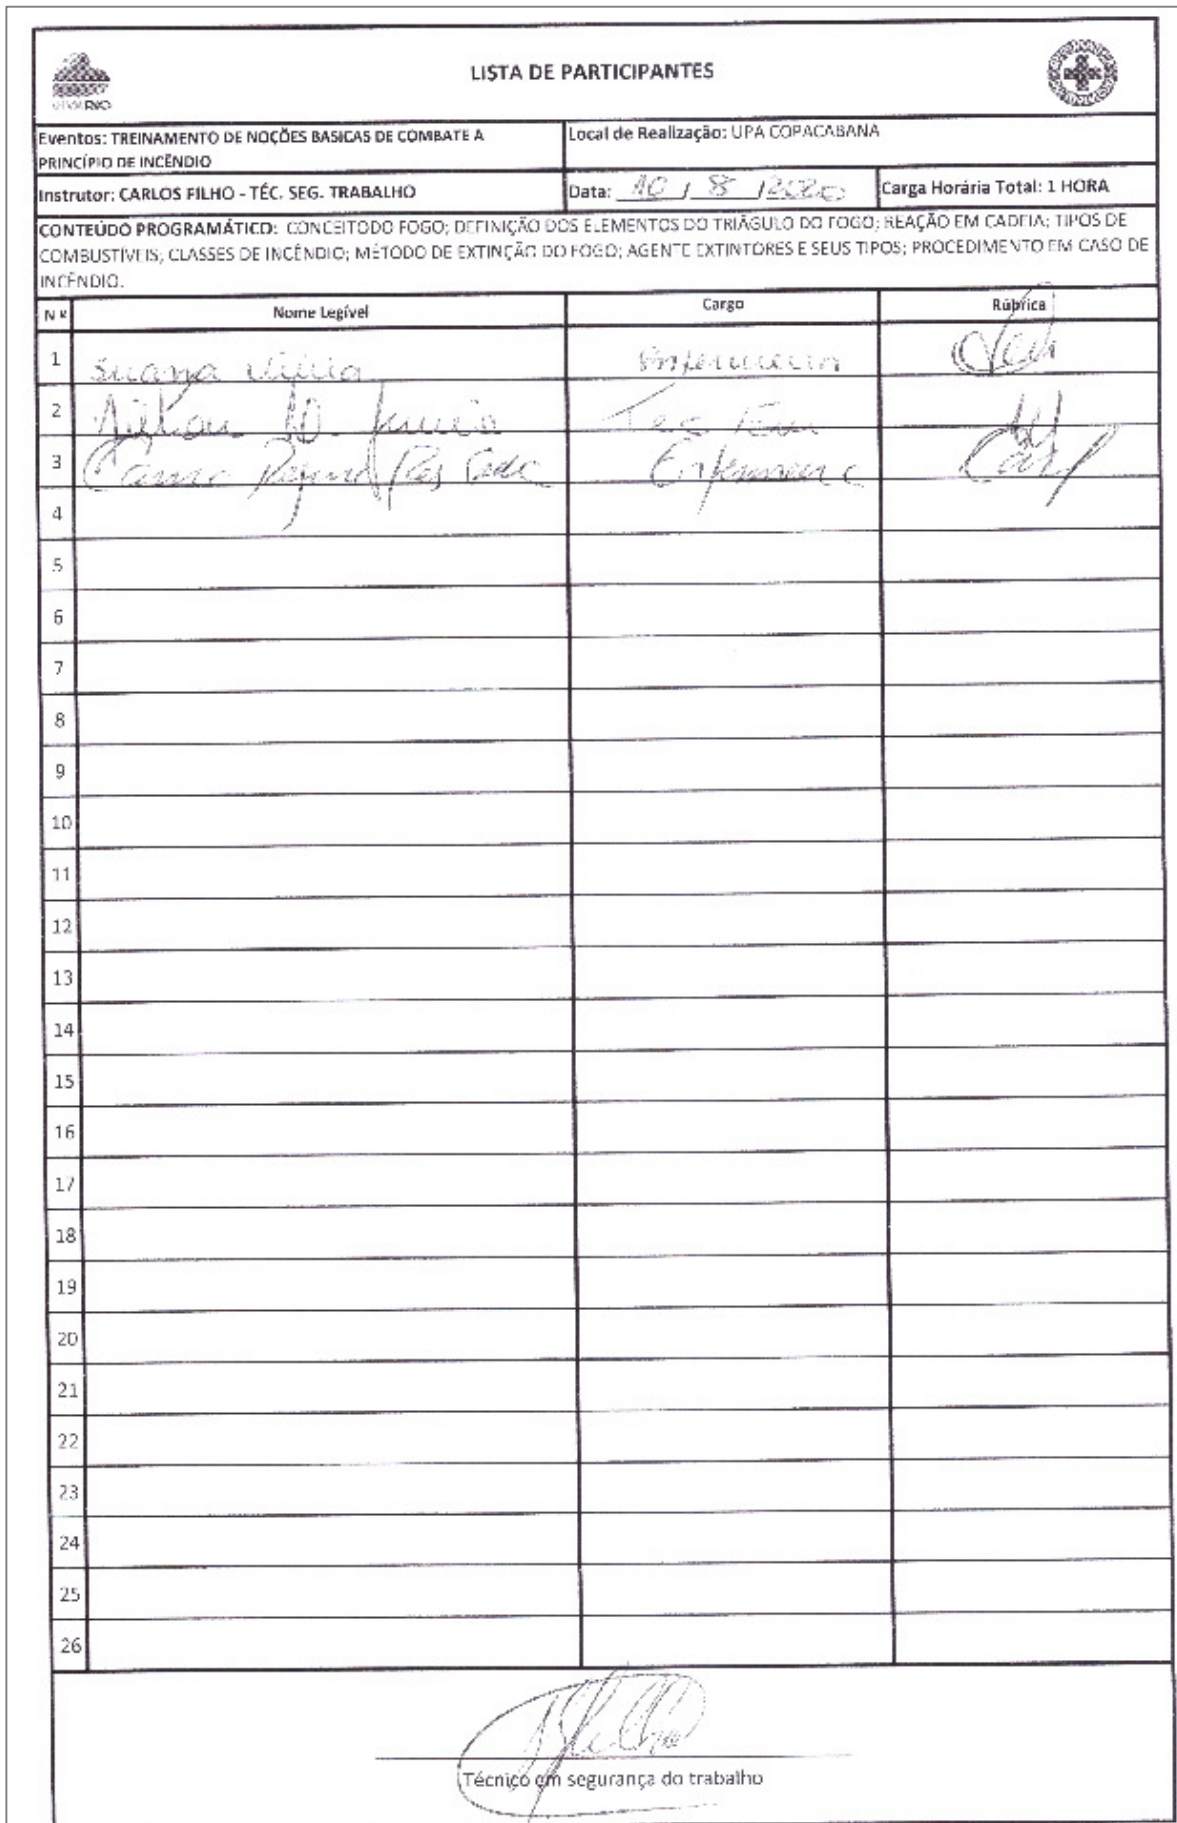 LISTA DE PARTICIPANTES
Eventos: TREINAMENTO DE NOÇÕES BASICAS DE COMBATE A
PRINCÍPIO DE INCÊNDIO
Local de Realização: UPA COPACABANA
Instrutor: CARLOS FILHO - TÉC. SEG. TRABALHO
Data: 10 / 8 / 2020
Carga Horária Total: 1 HORA
CONTEÚDO PROGRAMÁTICO: CONCEITODO FOGO; DEFINIÇÃO DOS ELEMENTOS DO TRIÁGULO DO FOGO; REAÇÃO EM CADEIA; TIPOS DE
COMBUSTÍVEIS; CLASSES DE INCÊNDIO; MÉTODO DE EXTINÇÃO DO FOGO; AGENTE EXTINTORES E SEUS TIPOS; PROCEDIMENTO EM CASO DE
INCÊNDIO.
Nº Nome Legível Cargo Rúbrica
1 Enfermeira
2 Junio Tec
3
4
5
6
7
8
9
10
11
12
13
14
15
16
17
18
19
20
21
22
23
24
25
26
Técnico em segurança do trabalho